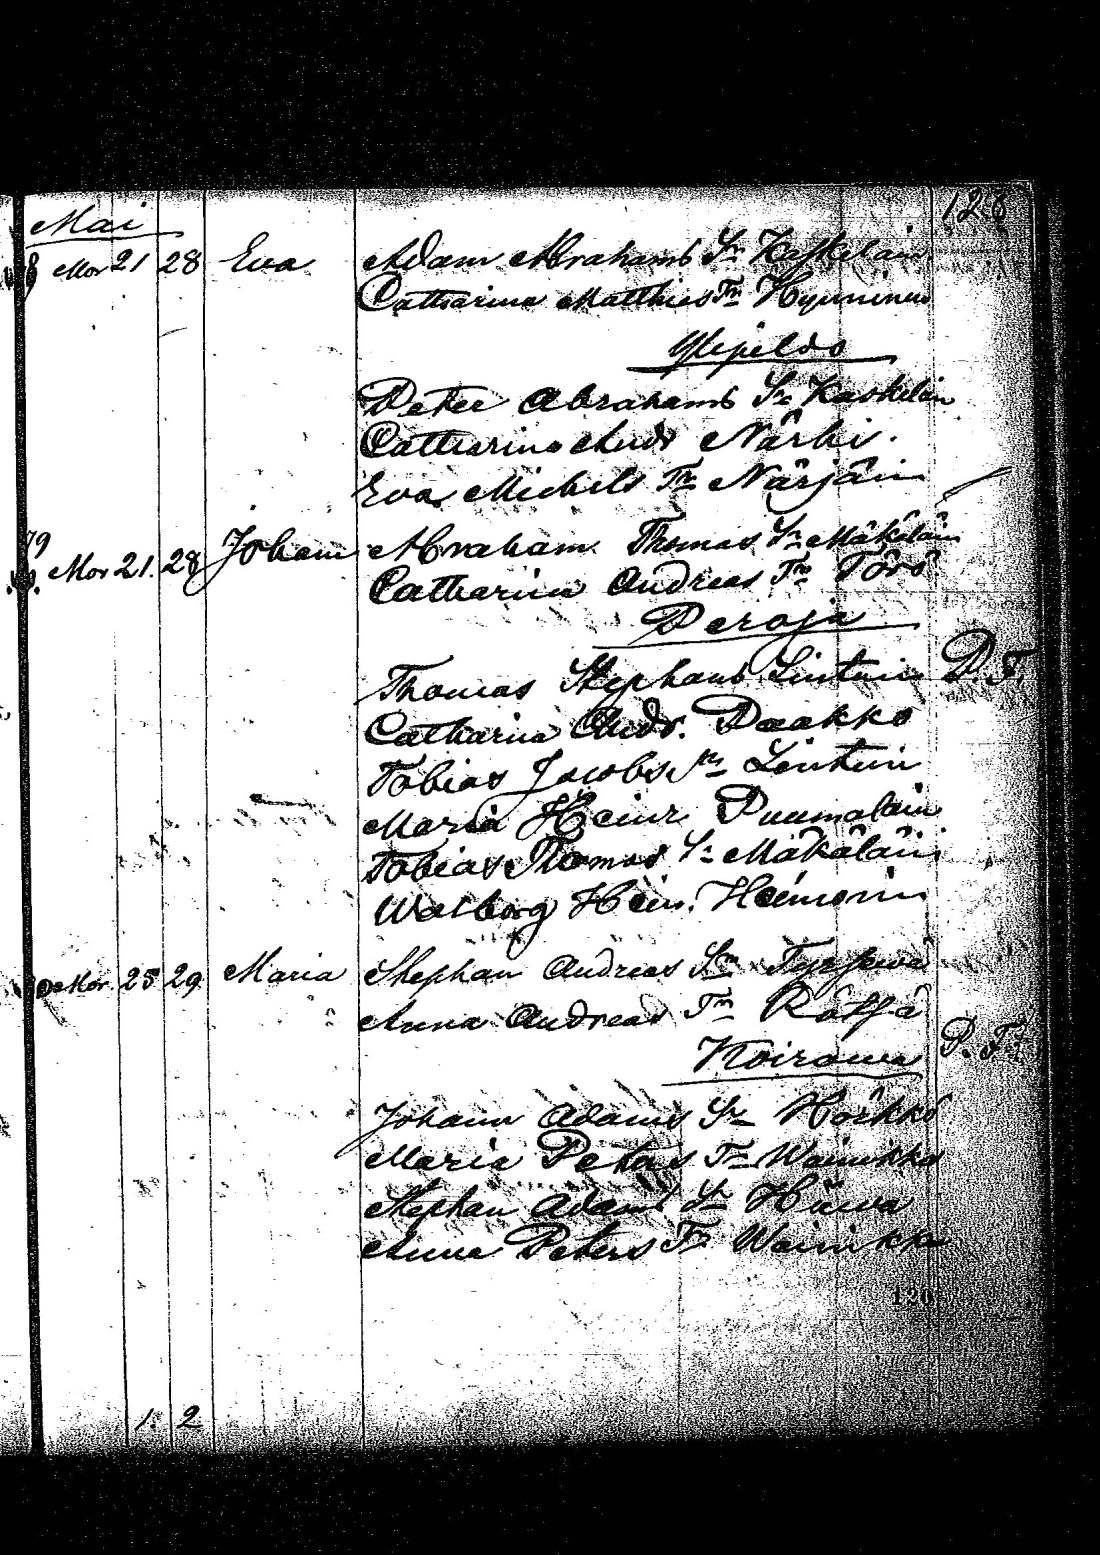 128
Mai
8 Mor 21 28 Eva Adam Abrahams Sn Kaskelain
Catharina Matthies Tn Hyuninen
Peter Abrahams Sn Kaskelain
Catharina Andr Närhi.
Eva Michels Tn Närjäin
79
Mor 21. 28 Johann Abraham Thomas Sn Mäkäläin
Catharina Andreas Tn Törö
Peroja
Thomas Stephans Lintuin P. F.
Catharina Andr. Paakko
Tobias Jacobs Sn Lintuin
Maria Heinr. Puumalain
Tobias Thomas Sn Mäkäläin
Walborg Hein. Heinonin
Mor. 25 29. Maria Stephan Andreas Sn
Anna Andreas Tn Rötjä
Koirawa P. F.
Johann Adams Sn Hörkkö
Maria Peters Tn Wainikka
Stephan Adams Sn Hüwa
Anna Peters Tn Wainikka
120
1. 2